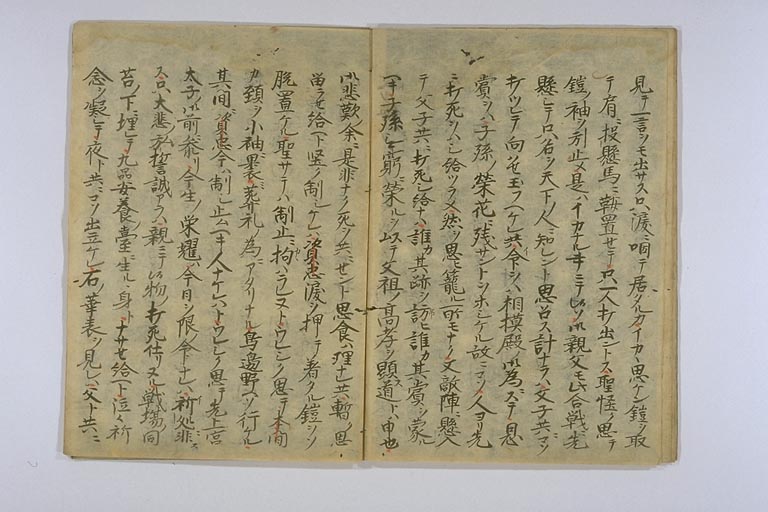 見テ一言ヲモ出サス只涙ニ咽テ居タルカイカヽ思ケン鎧ヲ取
テ肩ニ投懸馬ニ鞍置セテ只一人打出ントス聖怪ク思テ
鎧ノ袖ヲ引止メ是ハイカナル事ニテ候ソ御親父モ此合戦ニ先
懸シテ只名ヲ天下ノ人ニ知レント思召ス計ナラハ父子共ニコソ
打ツレテ向ハセ玉フヘケレ共命ヲハ相模殿ノ御為ニステ恩
賞ヲハ子孫ノ榮花ニ残サントヲホシケル故ニコソ人ヨリ先
ニ打死ヲハシ給フラメ然ヲ思ヒ籠ル所モナク又敵陣ニ懸入
テ父子共ニ打死シ給ナハ誰カ其跡ヲ訪ヒ誰カ其賞ヲ蒙ル
ヘキ子孫無窮ニ榮ルヲ以テ父祖ノ高孝ヲ顕ス道トハ申也
御悲歎ノ余ニ是非ナク死ヲ共ニセント思食ハ理ナレ共暫ク思
留ラセ給ヘト堅ク制シケレハ資忠涙ヲ押テ着タル鎧ヲソ
脱置ケル聖サテハ制止ニ拘ハラレヌトウレシク思テ本間
カ頚ヲ小袖ニ裹ミ葬礼ノ為ニアタリナル鳥邊野ヘソ行ケル
其間ニ資忠今ハ制シ止ムヘキ人ナケレハトウレシク思テ先上宮
太子ノ御前ニ参リ今生ノ栄耀ハ今日ヲ限ノ命ナレハ祈処ニ非
ス只大悲ノ弘誓誠アラハ親ニテ候シ物ノ打死仕リ候シ戦場ノ同
苔ノ下ニ埋レテ九品安養ノ臺ニ生ルヽ身トナサセ給ヘト泣々祈
念ヲ凝シテ夜ト共ニコソ出立ケレ石ノ華表ヲ見レハ父ト共ニ